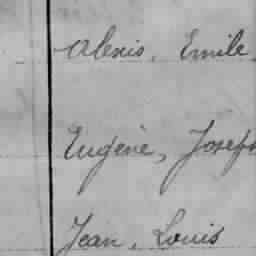 Alexis, Emile
Eugène, Joseph
Jean, Louis